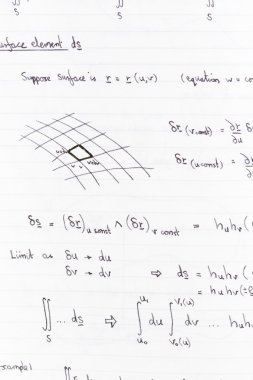 ∬ ∬ ∬
S S S
surface element ds
Suppose surface is r = r(u,v) (equation w = co
δr (v const) = ∂r/∂u δ
δr (u const) = ∂
δs = (δr)u const ∧ (δr)v const = hu hv (
Limit as δu → du
δv → dv ⇒ ds = hu hv (
= hu hv (
∬ ... ds ⇒ ∫ du ∫ dv ... hu h
S u₀ u₁ v₀(u) v₁(u)
example)
∬